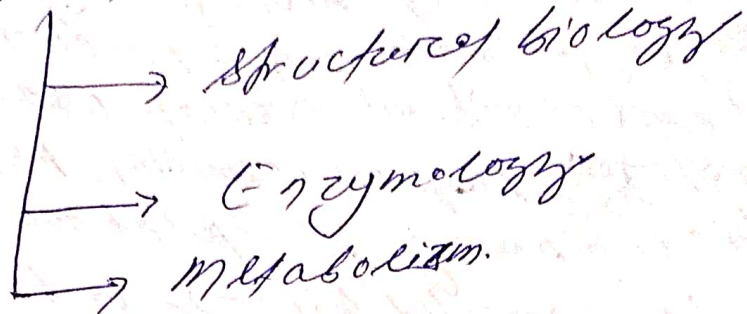 Structural biology
Enzymology
Metabolism.